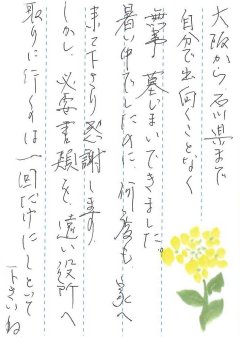 大阪から石川県まで
自分で出向くことなく
無事墓じまいできました。
暑い中でしたのに何度も家へ
来て下さり感謝します。
しかし、必要書類を遠い役所へ
取りに行くのは一回だけにしといて
下さいね